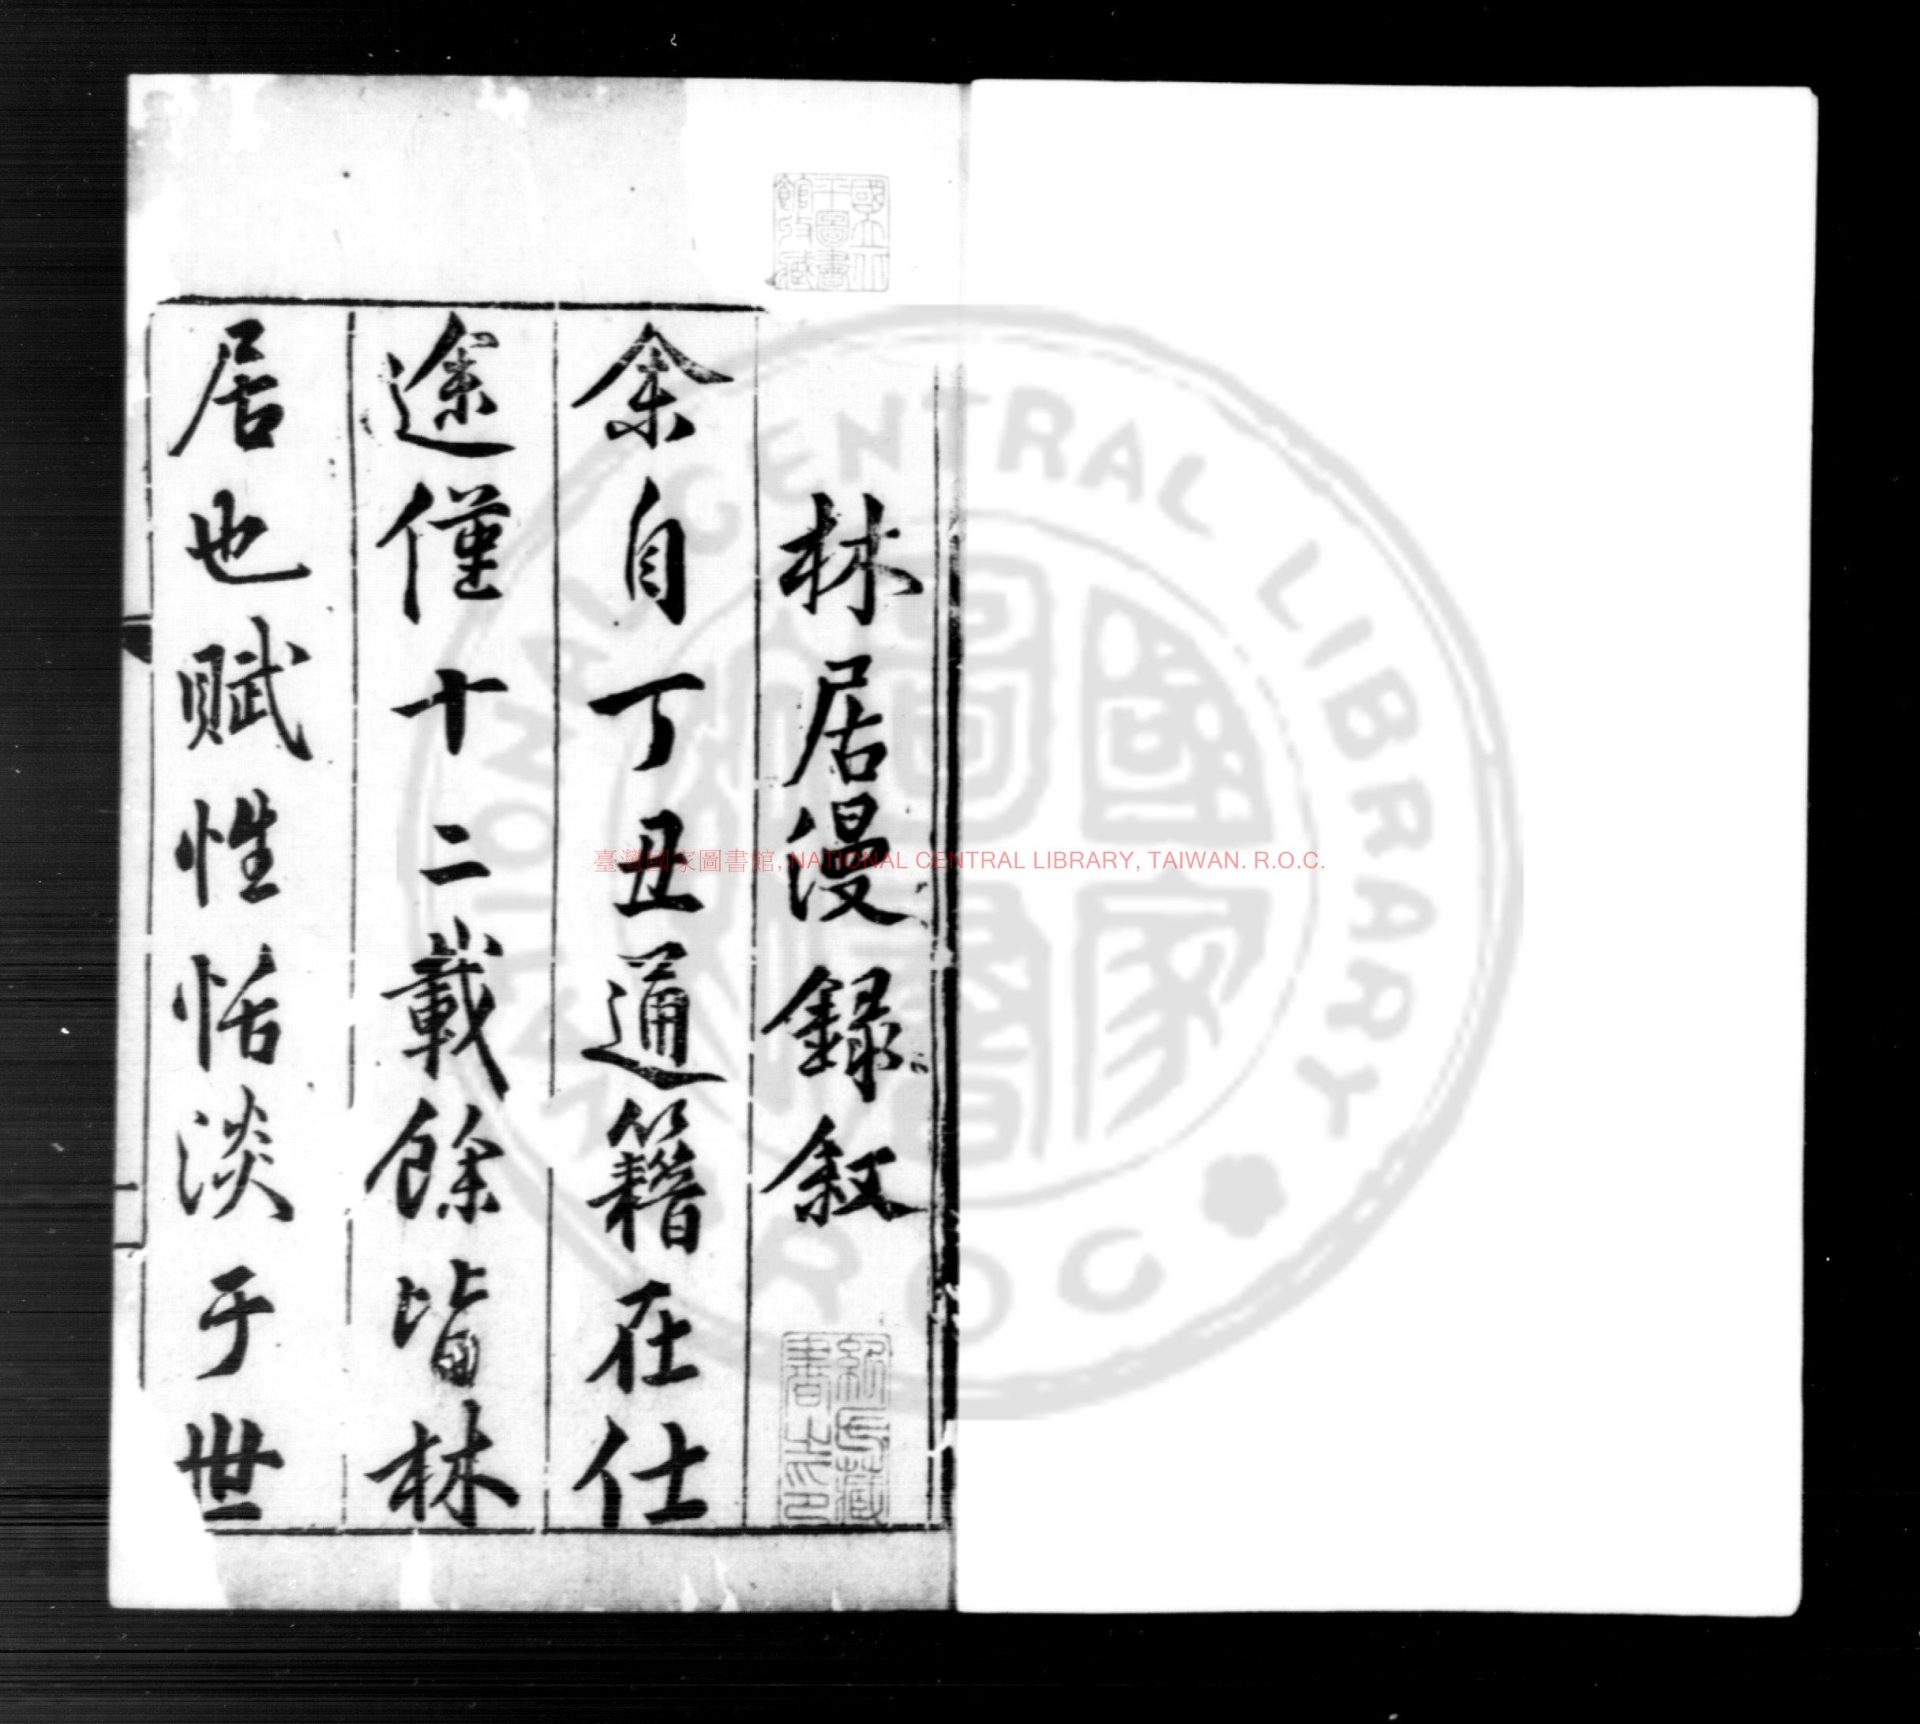 林居漫録敘
余自丁丑通籍在仕
途僅十二載餘皆林
居也賦性恬淡于世
國立中央圖書館收藏
臺灣國家圖書館, NATIONAL CENTRAL LIBRARY, TAIWAN. R.O.C.
NATIONAL CENTRAL LIBRARY R O C
國家圖書